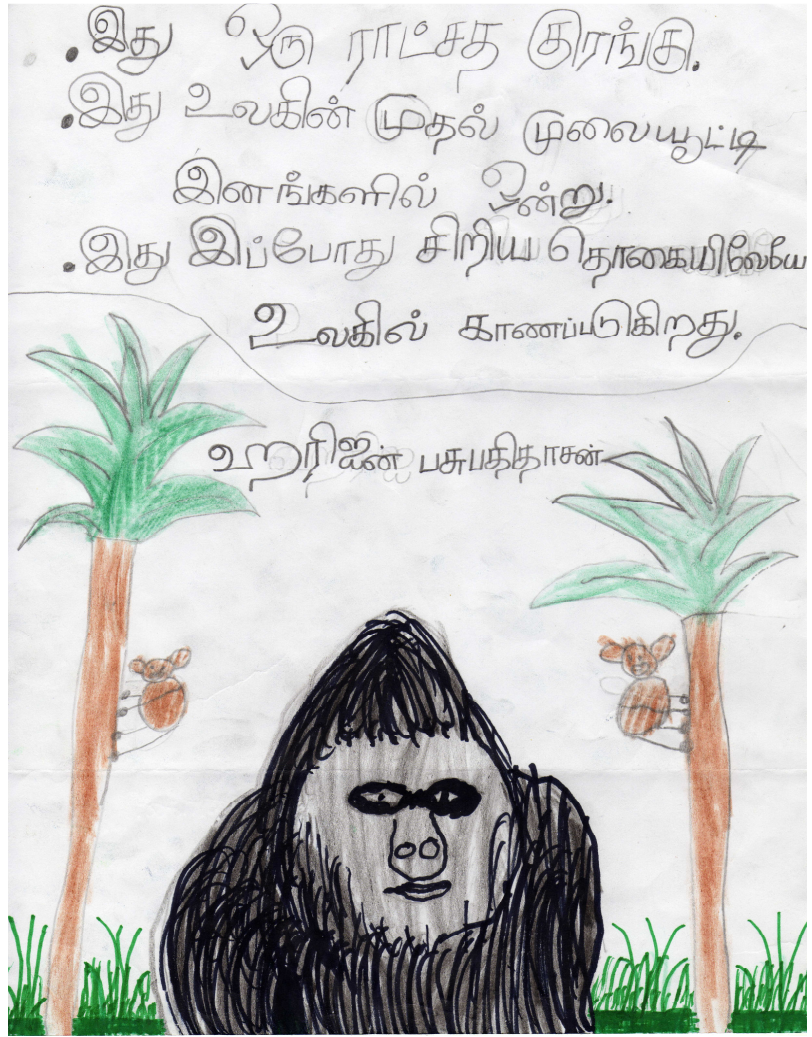 .இது ஒரு ராட்சத குரங்கு.
.இது உலகின் முதல் முலையூட்டி
இனங்களில் ஒன்று.
.இது இப்போது சிறிய தொகையிலேயே
உலகில் காணப்படுகிறது.
ஹரிஐன் பசுபதிதாசன்